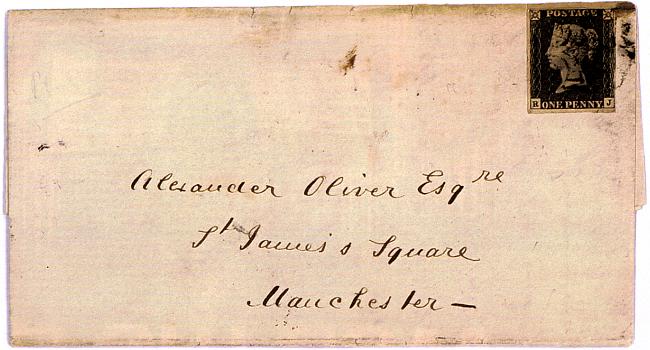 POSTAGE
R ONE PENNY J
Alexander Oliver Esqre
St James's Square
Manchester —